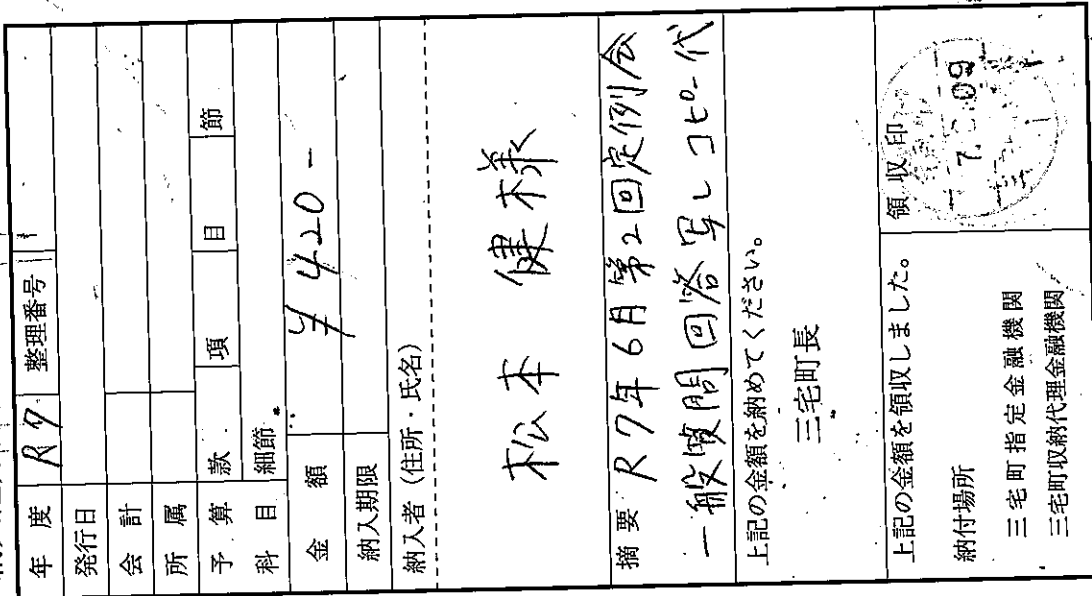 年度 R7 整理番号
発行日
会計
所属
予算科目 款 項 目 節
細節
金額 ¥420-
納入期限
納入者（住所・氏名）
松本 健様
摘要 R7年6月第2回定例会
一般質問回答写しコピー代
上記の金額を納めてください。
三宅町長
上記の金額を領収しました。
領収印
納付場所
三宅町指定金融機関
三宅町収納代理金融機関